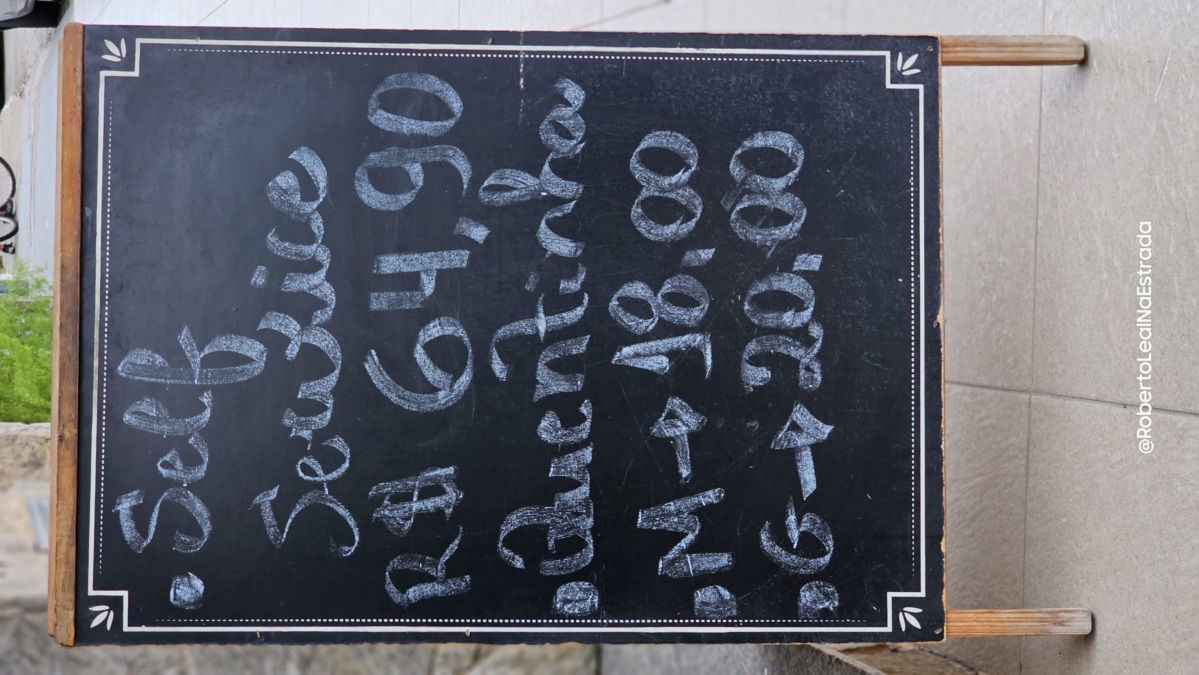 • Self
Service
R$ 64,90
• Quentinha
• M → 18,00
• G → 20,00
@RobertoLealNaEstrada